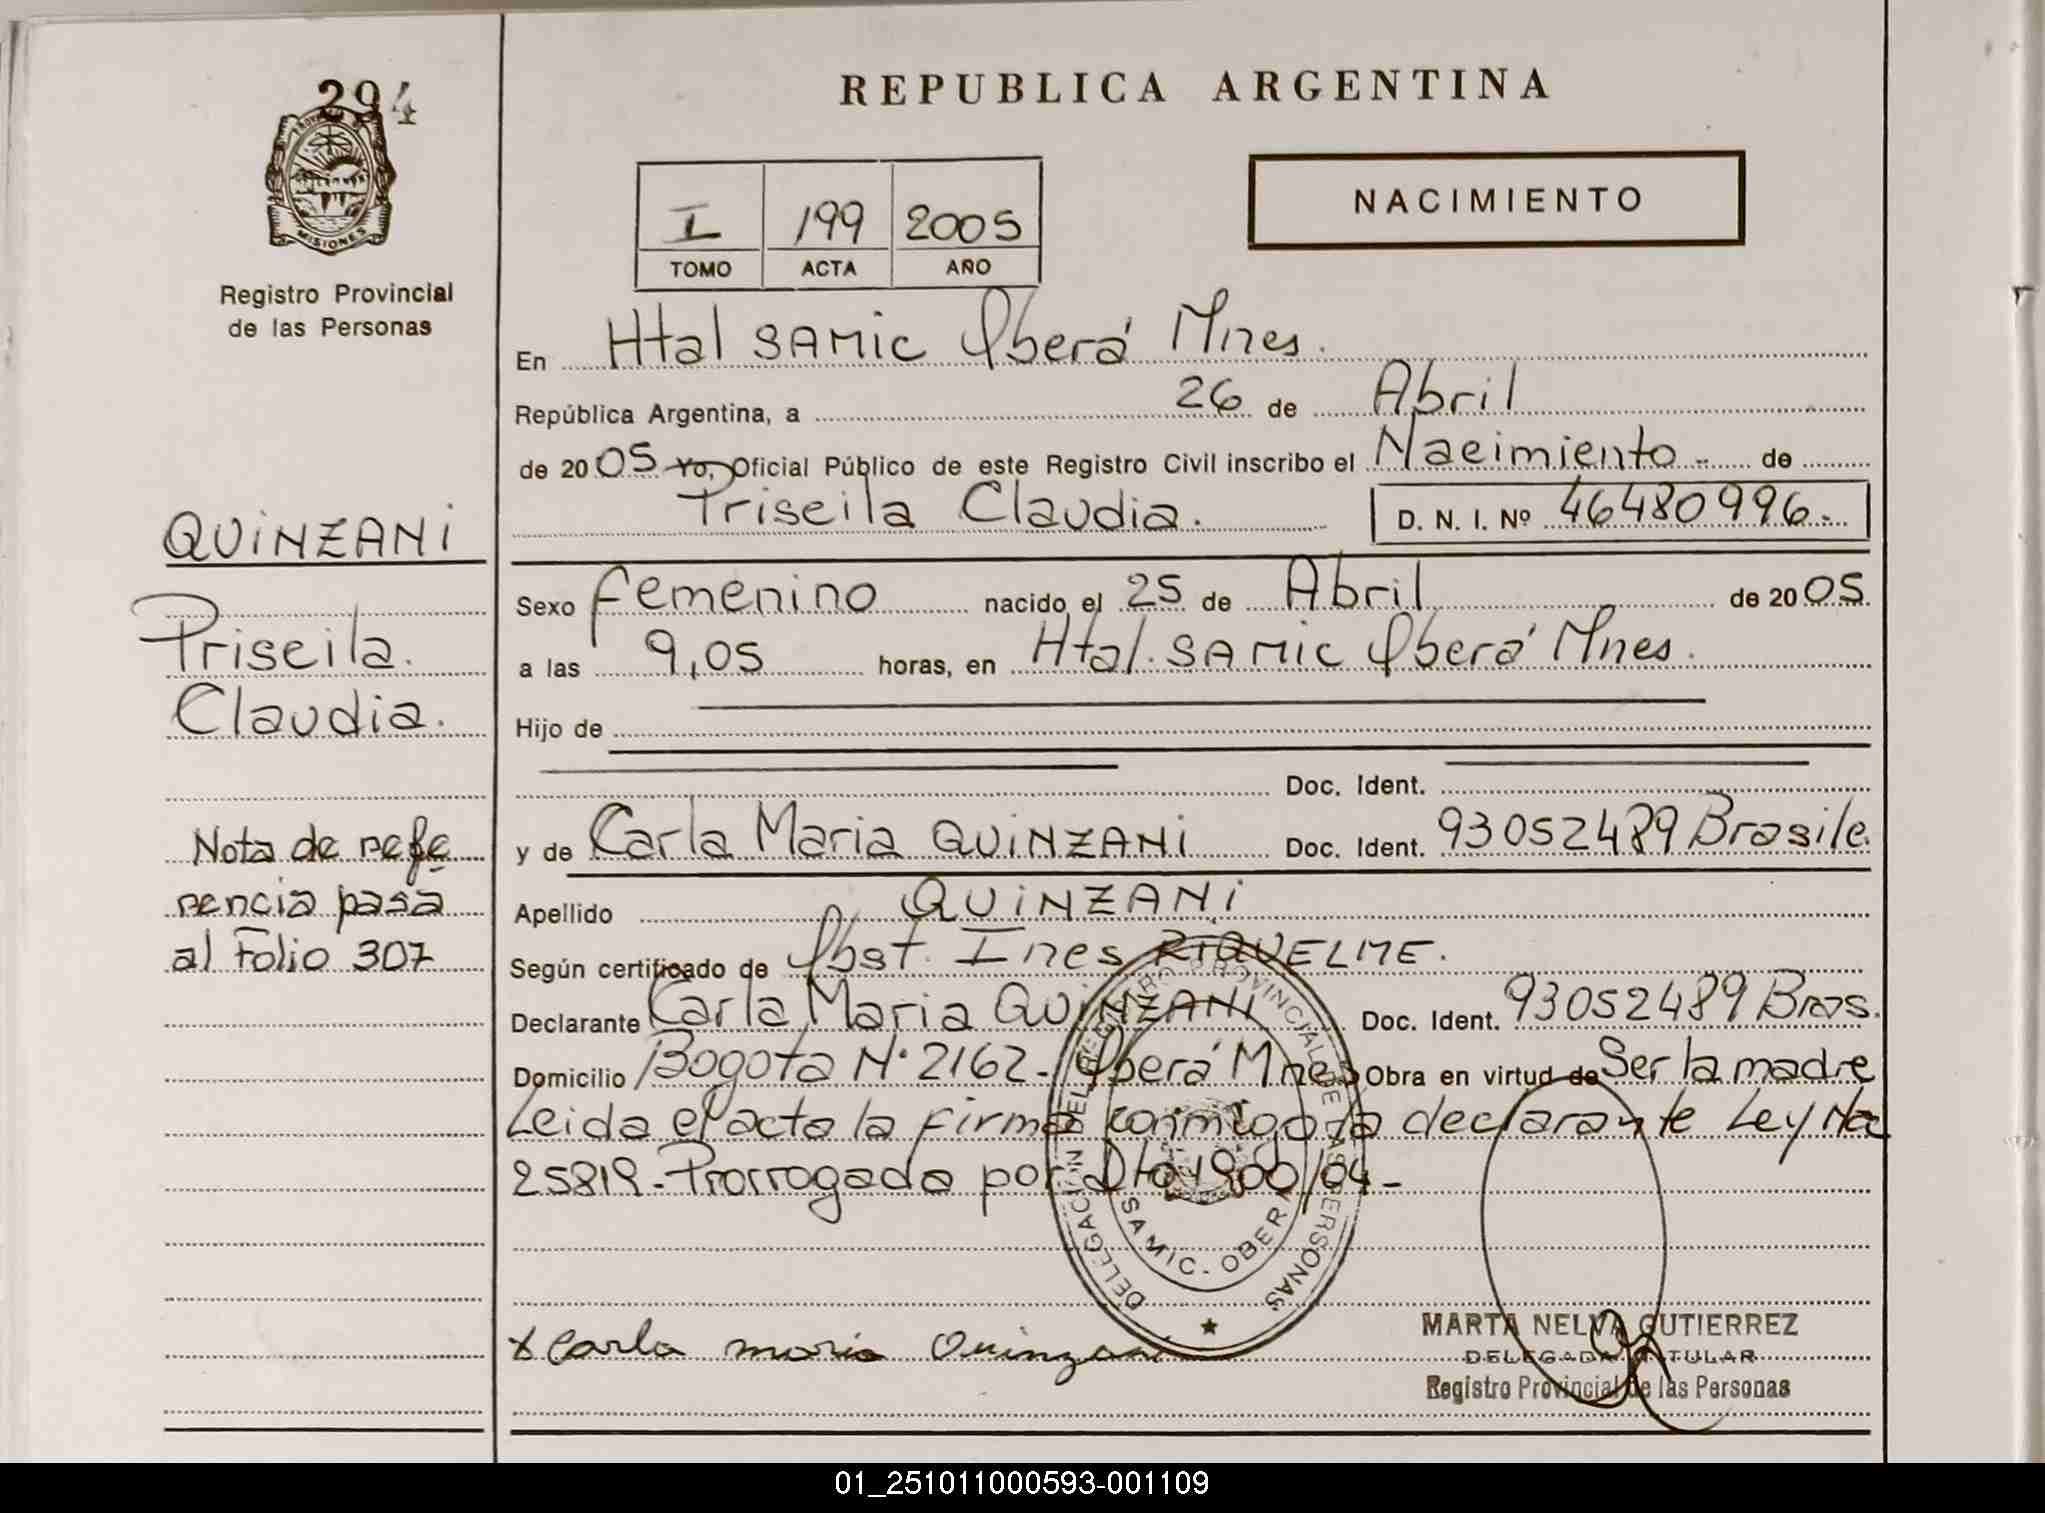 294
MISIONES
Registro Provincial
de las Personas
QUINZANI
Priscila
Claudia.
Nota de refe
rencia pasa
al Folio 307
REPUBLICA ARGENTINA
NACIMIENTO
I 199 2005
TOMO ACTA AÑO
En Htal SAMIC Oberá Mnes.
República Argentina, a 26 de Abril
de 2005 Yo, Oficial Público de este Registro Civil inscribo el Nacimiento - de
Priscila Claudia. D. N. I. Nº 46480996.-
Sexo Femenino nacido el 25 de Abril de 2005
a las 9,05 horas, en Htal. SAMIC Oberá Mnes.
Hijo de
Doc. Ident.
y de Carla Maria QUINZANI Doc. Ident. 93052489 Brasile.
Apellido QUINZANI
Según certificado de Obst. Ines RIQUELME.
Declarante Carla Maria QUINZANI Doc. Ident. 93052489 Bras.
Domicilio Bogota Nº 2162 - Oberá Mnes Obra en virtud de Ser la madre
Leida el acta la firma conmigo la declarante Ley Nac
25819 - Prorrogada por Dto 1900/04 -
DELEGACION DEL REGISTRO PROVINCIAL DE LAS PERSONAS
SAMIC - OBERA
x Carla maria Quinzani
MARTA NELVA GUTIERREZ
DELEGADA TITULAR
Registro Provincial de las Personas
01_251011000593-001109